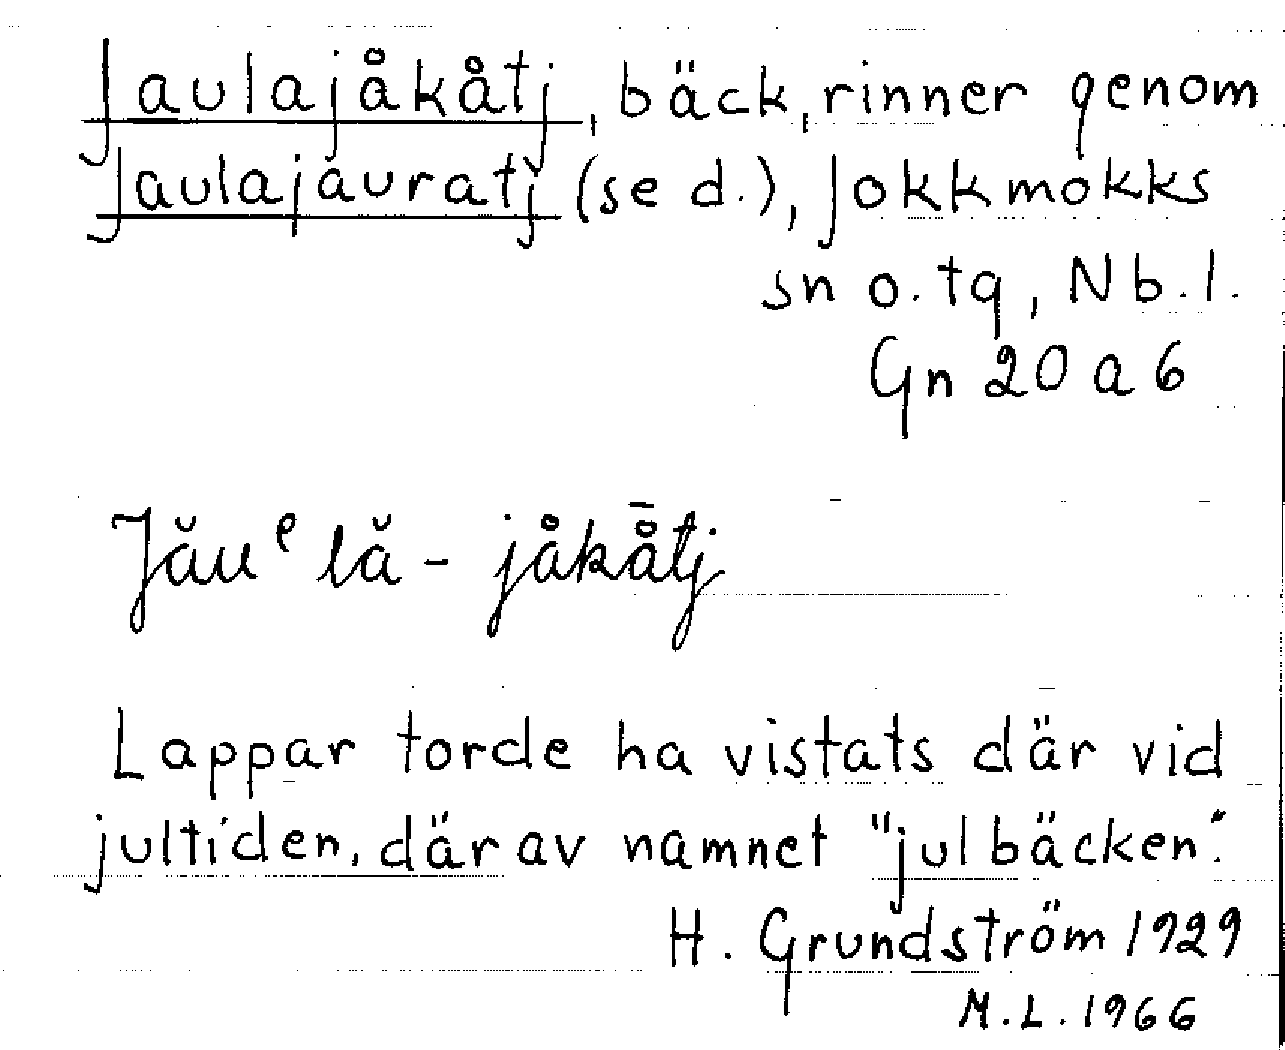 Jaulajåkåtj, bäck, rinner genom
Jaulajauratj (se d.), Jokkmokks
sn o. tg, Nb. l.
Gn 20 a 6
Jău ͤ lă - jåkå̄tj
Lappar torde ha vistats där vid
jultiden, därav namnet "julbäcken".
H. Grundström 1929
M.L. 1966